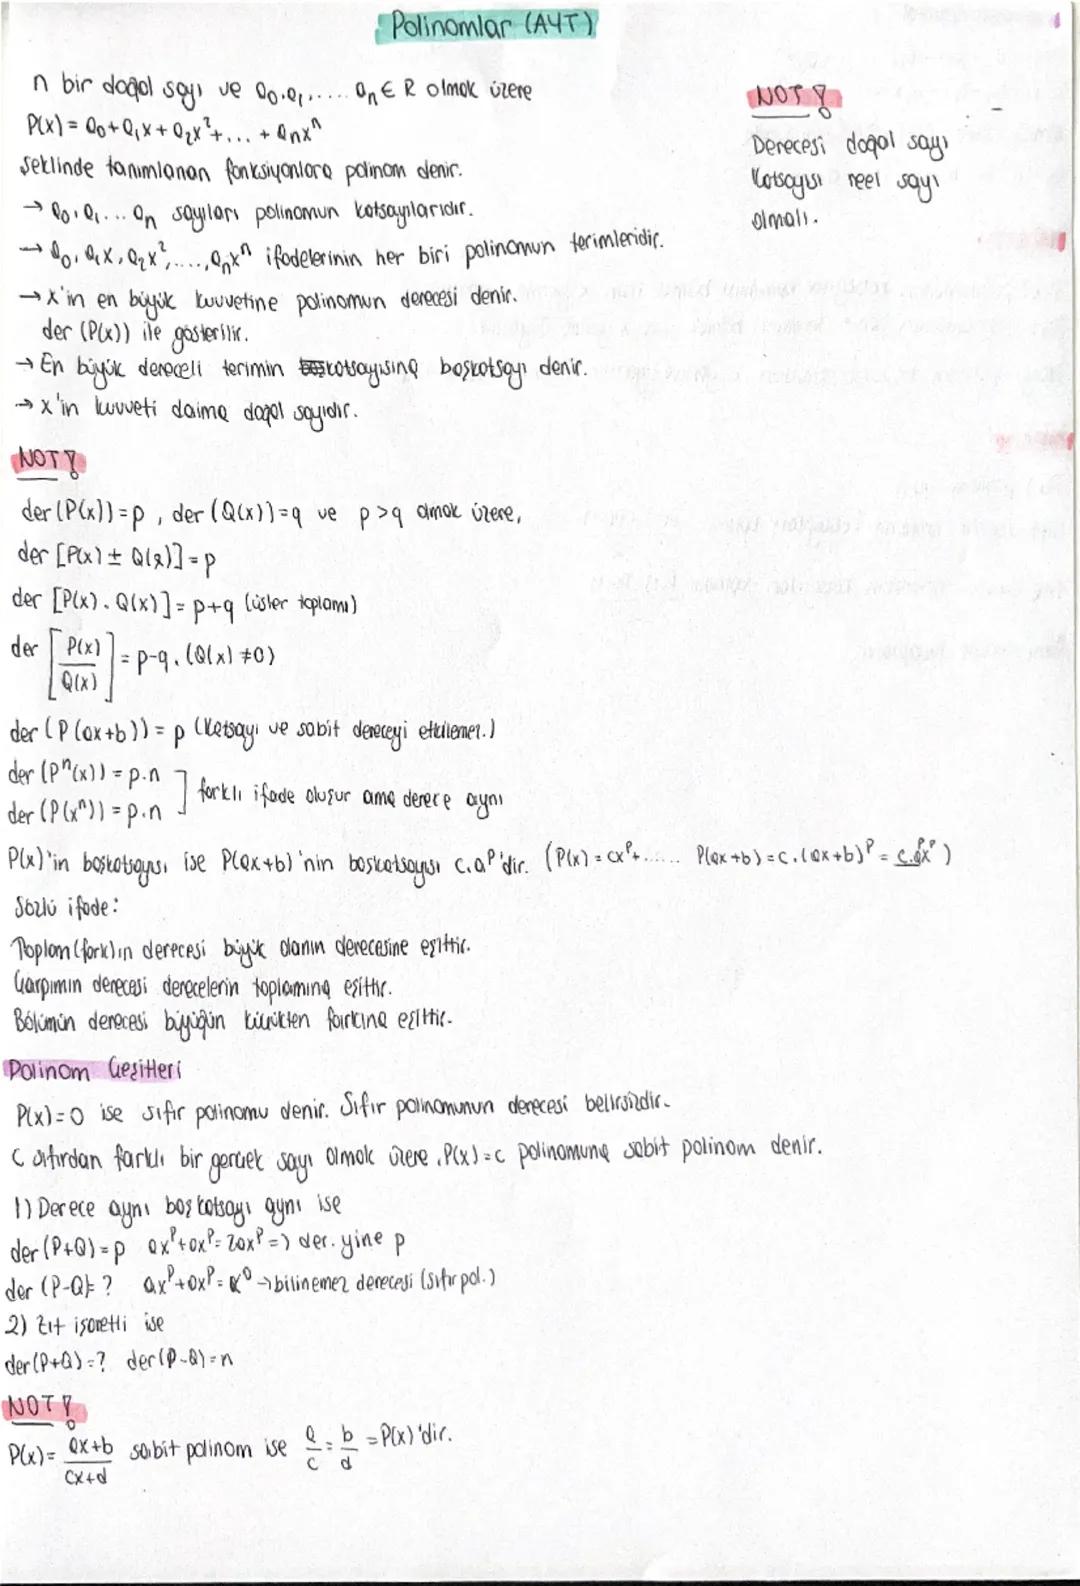 Polinomlar (AYT)
n bir doğal sayı ve a₀,a₁,.... aₙ ∈ R olmak üzere
P(x) = a₀+a₁x+a₂x²+... + aₙxⁿ
şeklinde tanımlanan fonksiyonlara polinom denir.
→ a₀,a₁... aₙ sayıları polinomun katsayılarıdır.
→ a₀, a₁x, a₂x²,....,aₙxⁿ ifadelerinin her biri polinomun terimleridir.
→ x'in en büyük kuvvetine polinomun derecesi denir.
der (P(x)) ile gösterilir.
→ En büyük dereceli terimin katsayısına başkatsayı denir.
→ x'in kuvveti daima doğal sayıdır.
NOT!
Derecesi doğal sayı
Katsayısı reel sayı
olmalı.
NOT!
der(P(x))=p, der(Q(x))=q ve p>q olmak üzere,
der [P(x) ± Q(x)] = p
der [P(x). Q(x)] = p+q (üsler toplamı)
der [P(x)/Q(x)] = p-q. (Q(x) ≠0)
der (P(ax+b)) = p (Katsayı ve sabit dereceyi etkilemez.)
der (Pⁿ(x)) = p.n
der (P(xⁿ)) = p.n ] farklı ifade oluşur ama derece aynı
P(x)'in başkatsayısı ise P(ax+b)'nin başkatsayısı c.aᵖ'dir. (P(x) = cxᵖ+...... P(ax+b)=c.(ax+b)ᵖ = c.aᵖxᵖ)
Sözlü ifade:
Toplam(fark)ın derecesi büyük olanın derecesine eşittir.
Çarpımın derecesi derecelerin toplamına eşittir.
Bölümün derecesi büyüğün küçükten farkına eşittir.
Polinom Çeşitleri
P(x)=0 ise sıfır polinomu denir. Sıfır polinomunun derecesi belirsizdir.
C sıfırdan farklı bir gerçek sayı olmak üzere, P(x)=c polinomuna sabit polinom denir.
1) Derece aynı baş katsayı aynı ise
der (P+Q)=p axᵖ+axᵖ=2axᵖ => der. yine p
der (P-Q)= ? axᵖ+axᵖ= x⁰ → bilinemez derecesi (sıfır pol.)
2) Zıt işaretli ise
der(P+Q)=? der(P-Q)=n
NOT!
P(x)= ax+b/cx+d sabit polinom ise a/c = b/d = P(x)'dir.